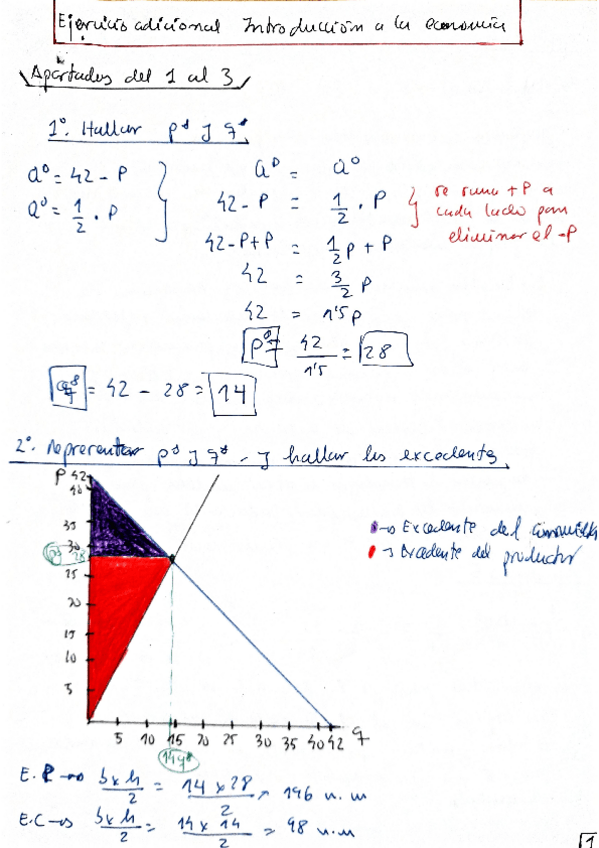 Ejercicio adicional Introducción a la economía
Apartados del 1 al 3
1º. Hallar p* y q*
Q^D = 42 - P
Q^O = 1/2 . P
Q^D = Q^O
42 - P = 1/2 . P
42 - P + P = 1/2 P + P
42 = 3/2 P
42 = 1'5 P
P* = 42/1'5 = 28
q* = 42 - 28 = 14
se suma +P a
cada lado para
eliminar el -P
2º. Representar p* y q* - y hallar los excedentes
P 42
40
35
30
p* 28
25
20
15
10
5
5 10 15 20 25 30 35 40 42 q
14 q*
→ Excedente del consumidor
→ Excedente del productor
E.P → b x h / 2 = 14 x 28 / 2 = 196 u.m
E.C → b x h / 2 = 14 x 14 / 2 = 98 u.m
1